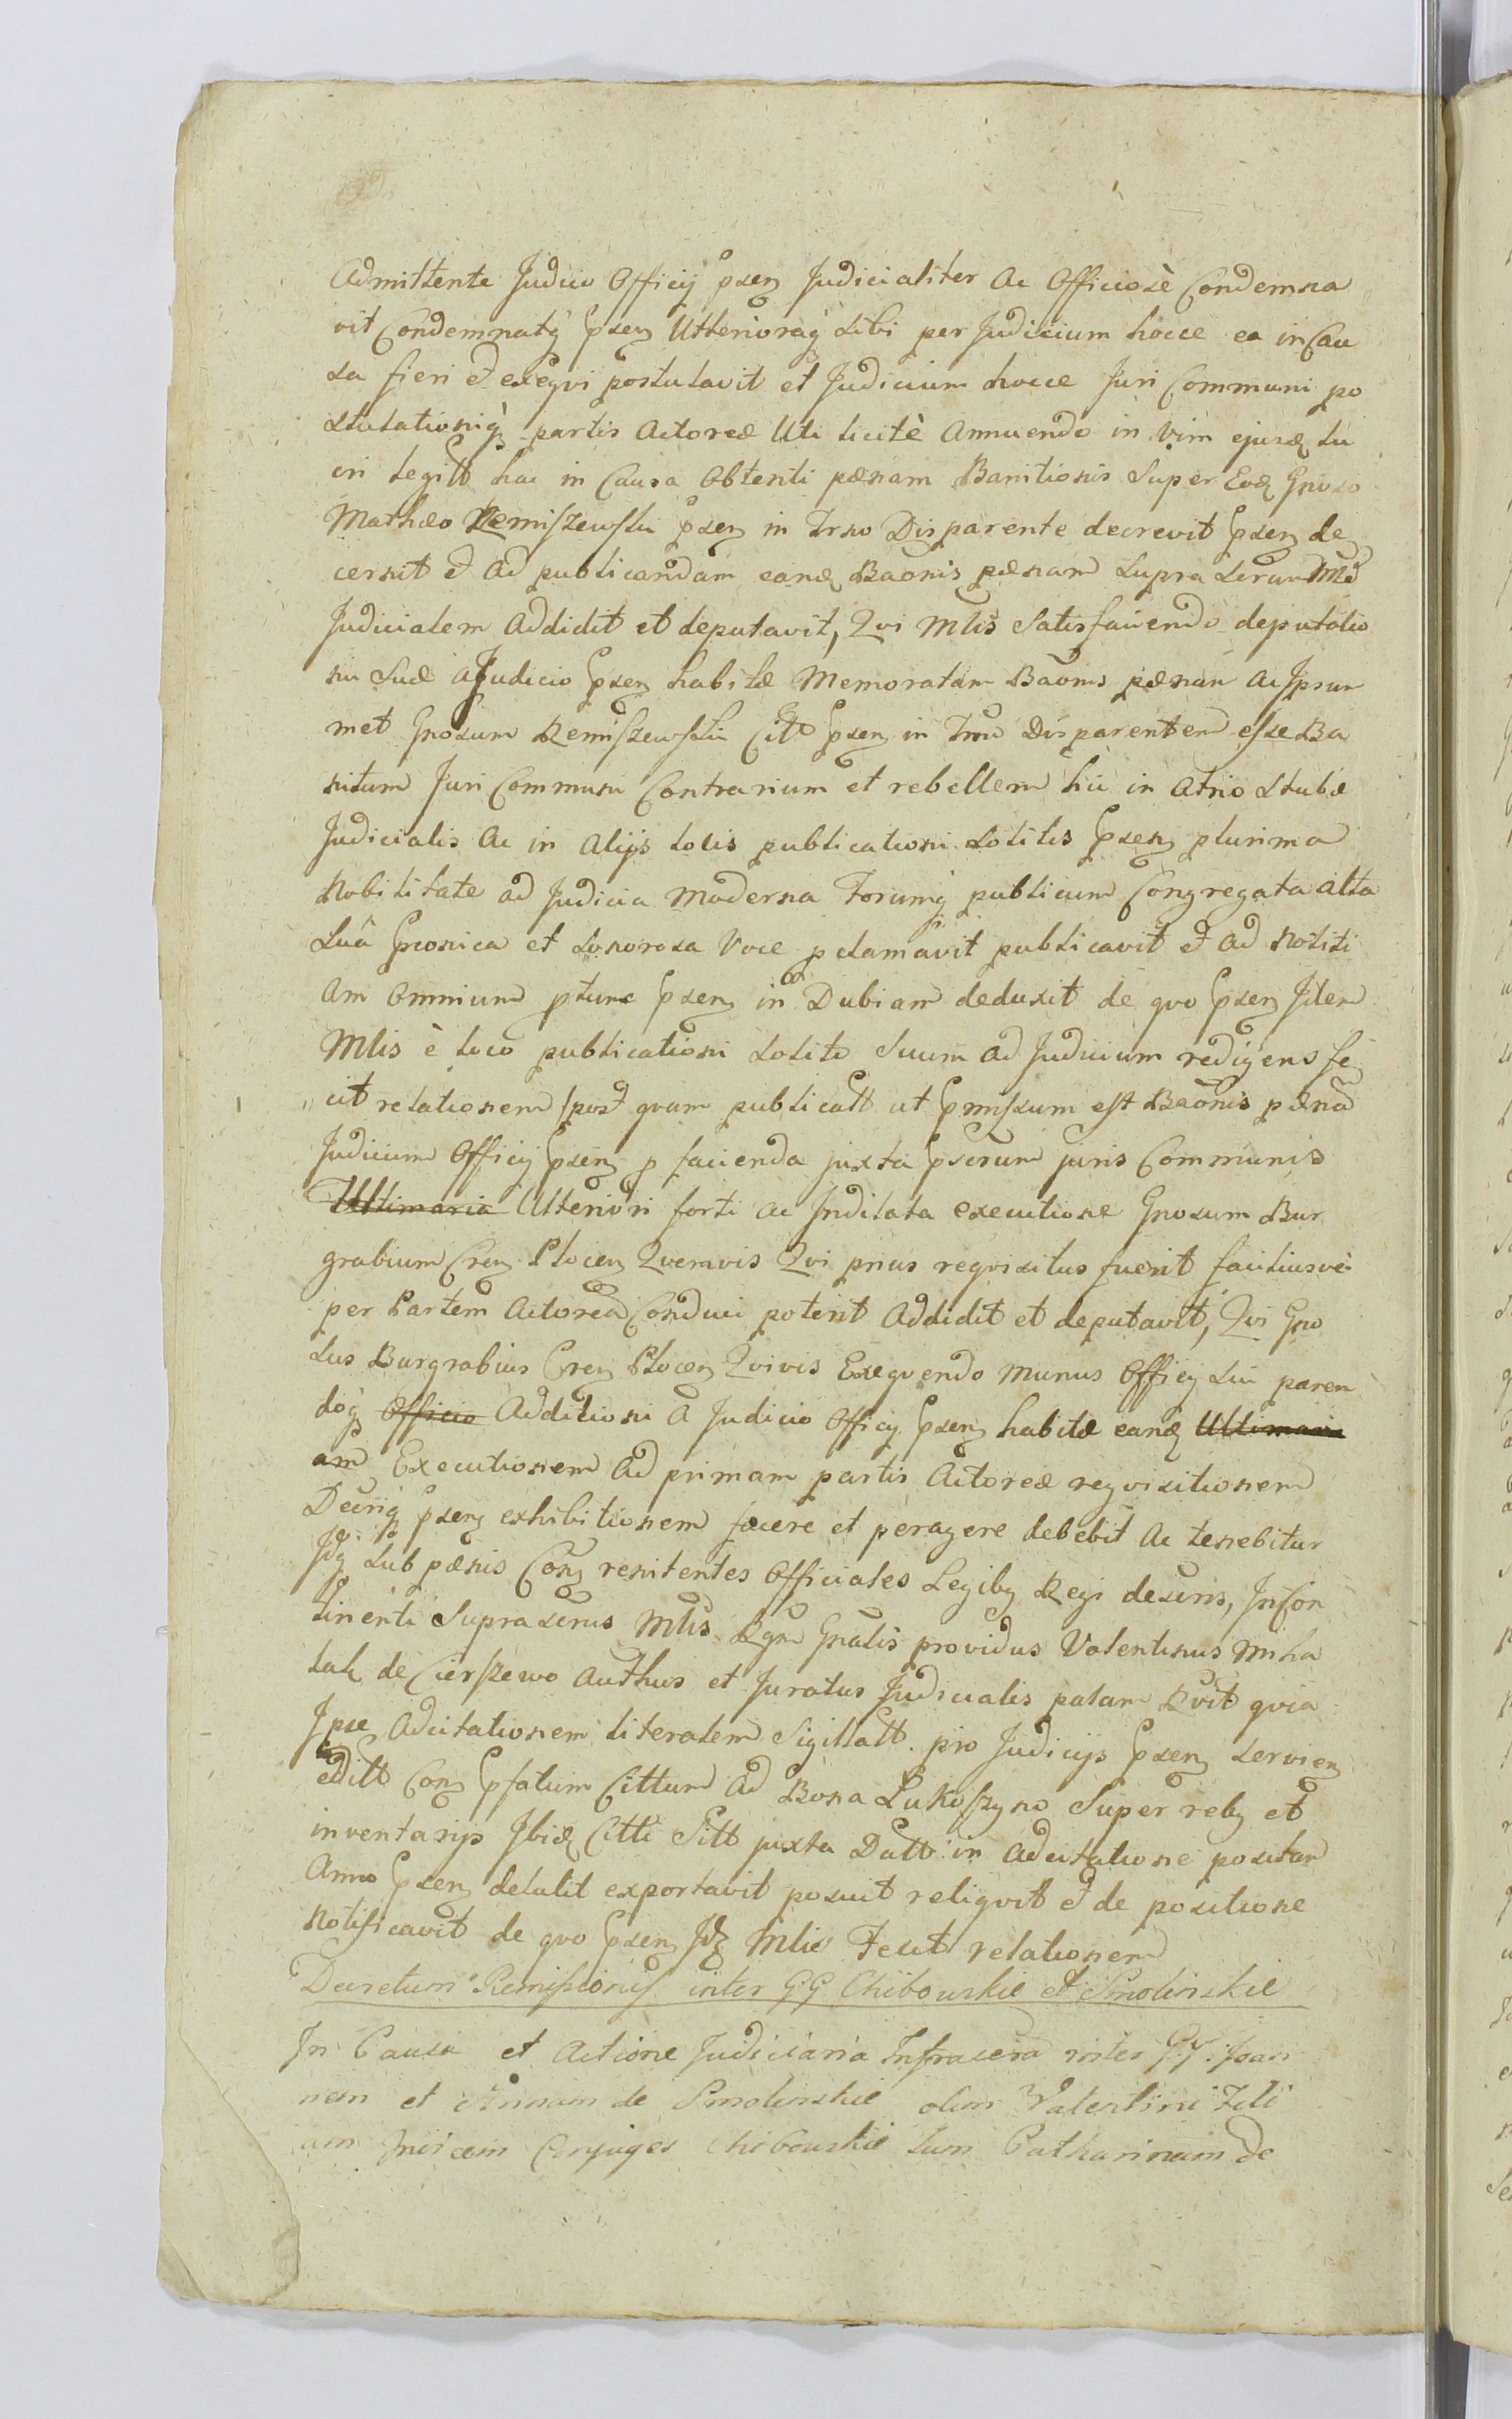 Admittente Judicio Officij psen Judicialiter Ac Officiosè Condemna
vit Condemnatq psen Ulterioraq sibi per Judicium hocce ea in Cau
sa fieri et exeqvi postulavit et Judicium hocce Juri Communi po
stulationiq partis Actoreæ Uti licitè Annuendo in vim ejusd lu
cri legitt hac in Causa Obtenti pænam Banitionis Super Eod Gnoso
Mathæo Remiszewski psen in Trno Disparente decrevit psen de
cernit et Ad publicandam eand Baonis pænam supra scrum Mlem
Judicialem Addidit et deputavit, Qvi Mlis Satisfaciendo deputatio
ni Suæ A Judicio psen habitæ Memoratam Baonis pænam Ac Ipsum
met Gnosum Remiszewski Citt psen in Trno Disparentem esse Ba
nitum Juri Communi Contrarium et rebellem hic in Atrio Stubæ
Judicialis Ac in Alijs locis publicationi Solitis psen plurima
Nobilitate ad Judicia Moderna Forumq publicum Congregata alta
Suâ pconica et sonorosa Voce pclamavit publicavit et Ad Notiti
Am Omnium ptunc psen in Dubiam deduxit de qvo psen Idem
Mlis è loco publicationi Solito Suum Ad Judicium redigens fe
cit relationem post qvam publicatt ut pmissum est Baonis pæna
Judicium Officij psen p facienda juxta pscrum juris Communis
Ultimaria Ulteriori forti ac Inditata executione Gnosum Bur
grabium Cren Plocen Qvemvis Qvi prius reqvisitus fuerit faciliusve
per Partem Actoream Conduci poterit Addidit et deputavit, Qvi Gno
sus Burgrabius Cren Plocen Qvivis Exeqvendo Munus Officij sui paren
doq Officio Additioni A Judicio Officij psen habitæ eand Ultimari
am Executionem Ad primam partis Actoreæ reqvisitionem
Decriq psen exhibitionem facere et peragere debebit Ac tenebitur
Idq Sub pænis Con renitentes Officiales Legibq Regi descris, Incon
tinenti Suprascrius Mlis Rgni Gnalis providus Valentinus Micha
lak de Cierszewo Authus et Juratus Judicialis palam Rvit qvia
Ipse Adcitationem literalem Sigillatt. pro Judicijs psen servien
editt Con pfatum Cittum Ad Bona Lukoszyno Super rebq et
inventarijs Ibid Citti Sitt juxta Datt in Adcitatione positam
Anno psen detulit exportavit posuit reliqvit et de positione
Notificavit de qvo psen Id Mlis Fecit relationem
Decretum Remissionis inter GG Chibowskie et Smolinskie
In Causa et Actione Judiciaria Infrascra inter GG. Joan
nem et Annam de Smolinskie olim Valentini Fili
am Invicem Conjuges Chibowskie tum Catharinam de